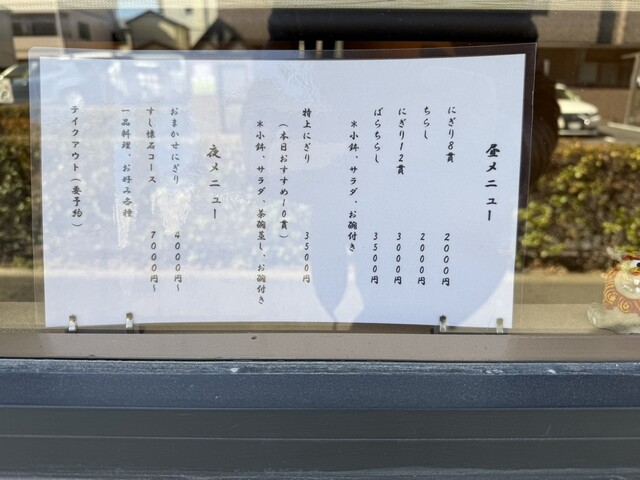 昼メニュー
にぎり8貫 2000円
ちらし 2000円
にぎり12貫 3000円
ばらちらし 3500円
*小鉢、サラダ、お椀付き
特上にぎり 3500円
(本日おすすめ10貫)
*小鉢、サラダ、茶碗蒸し、お椀付き
夜メニュー
おまかせにぎり 4000円~
すし懐石コース 7000円~
一品料理、お好み各種
テイクアウト(要予約)